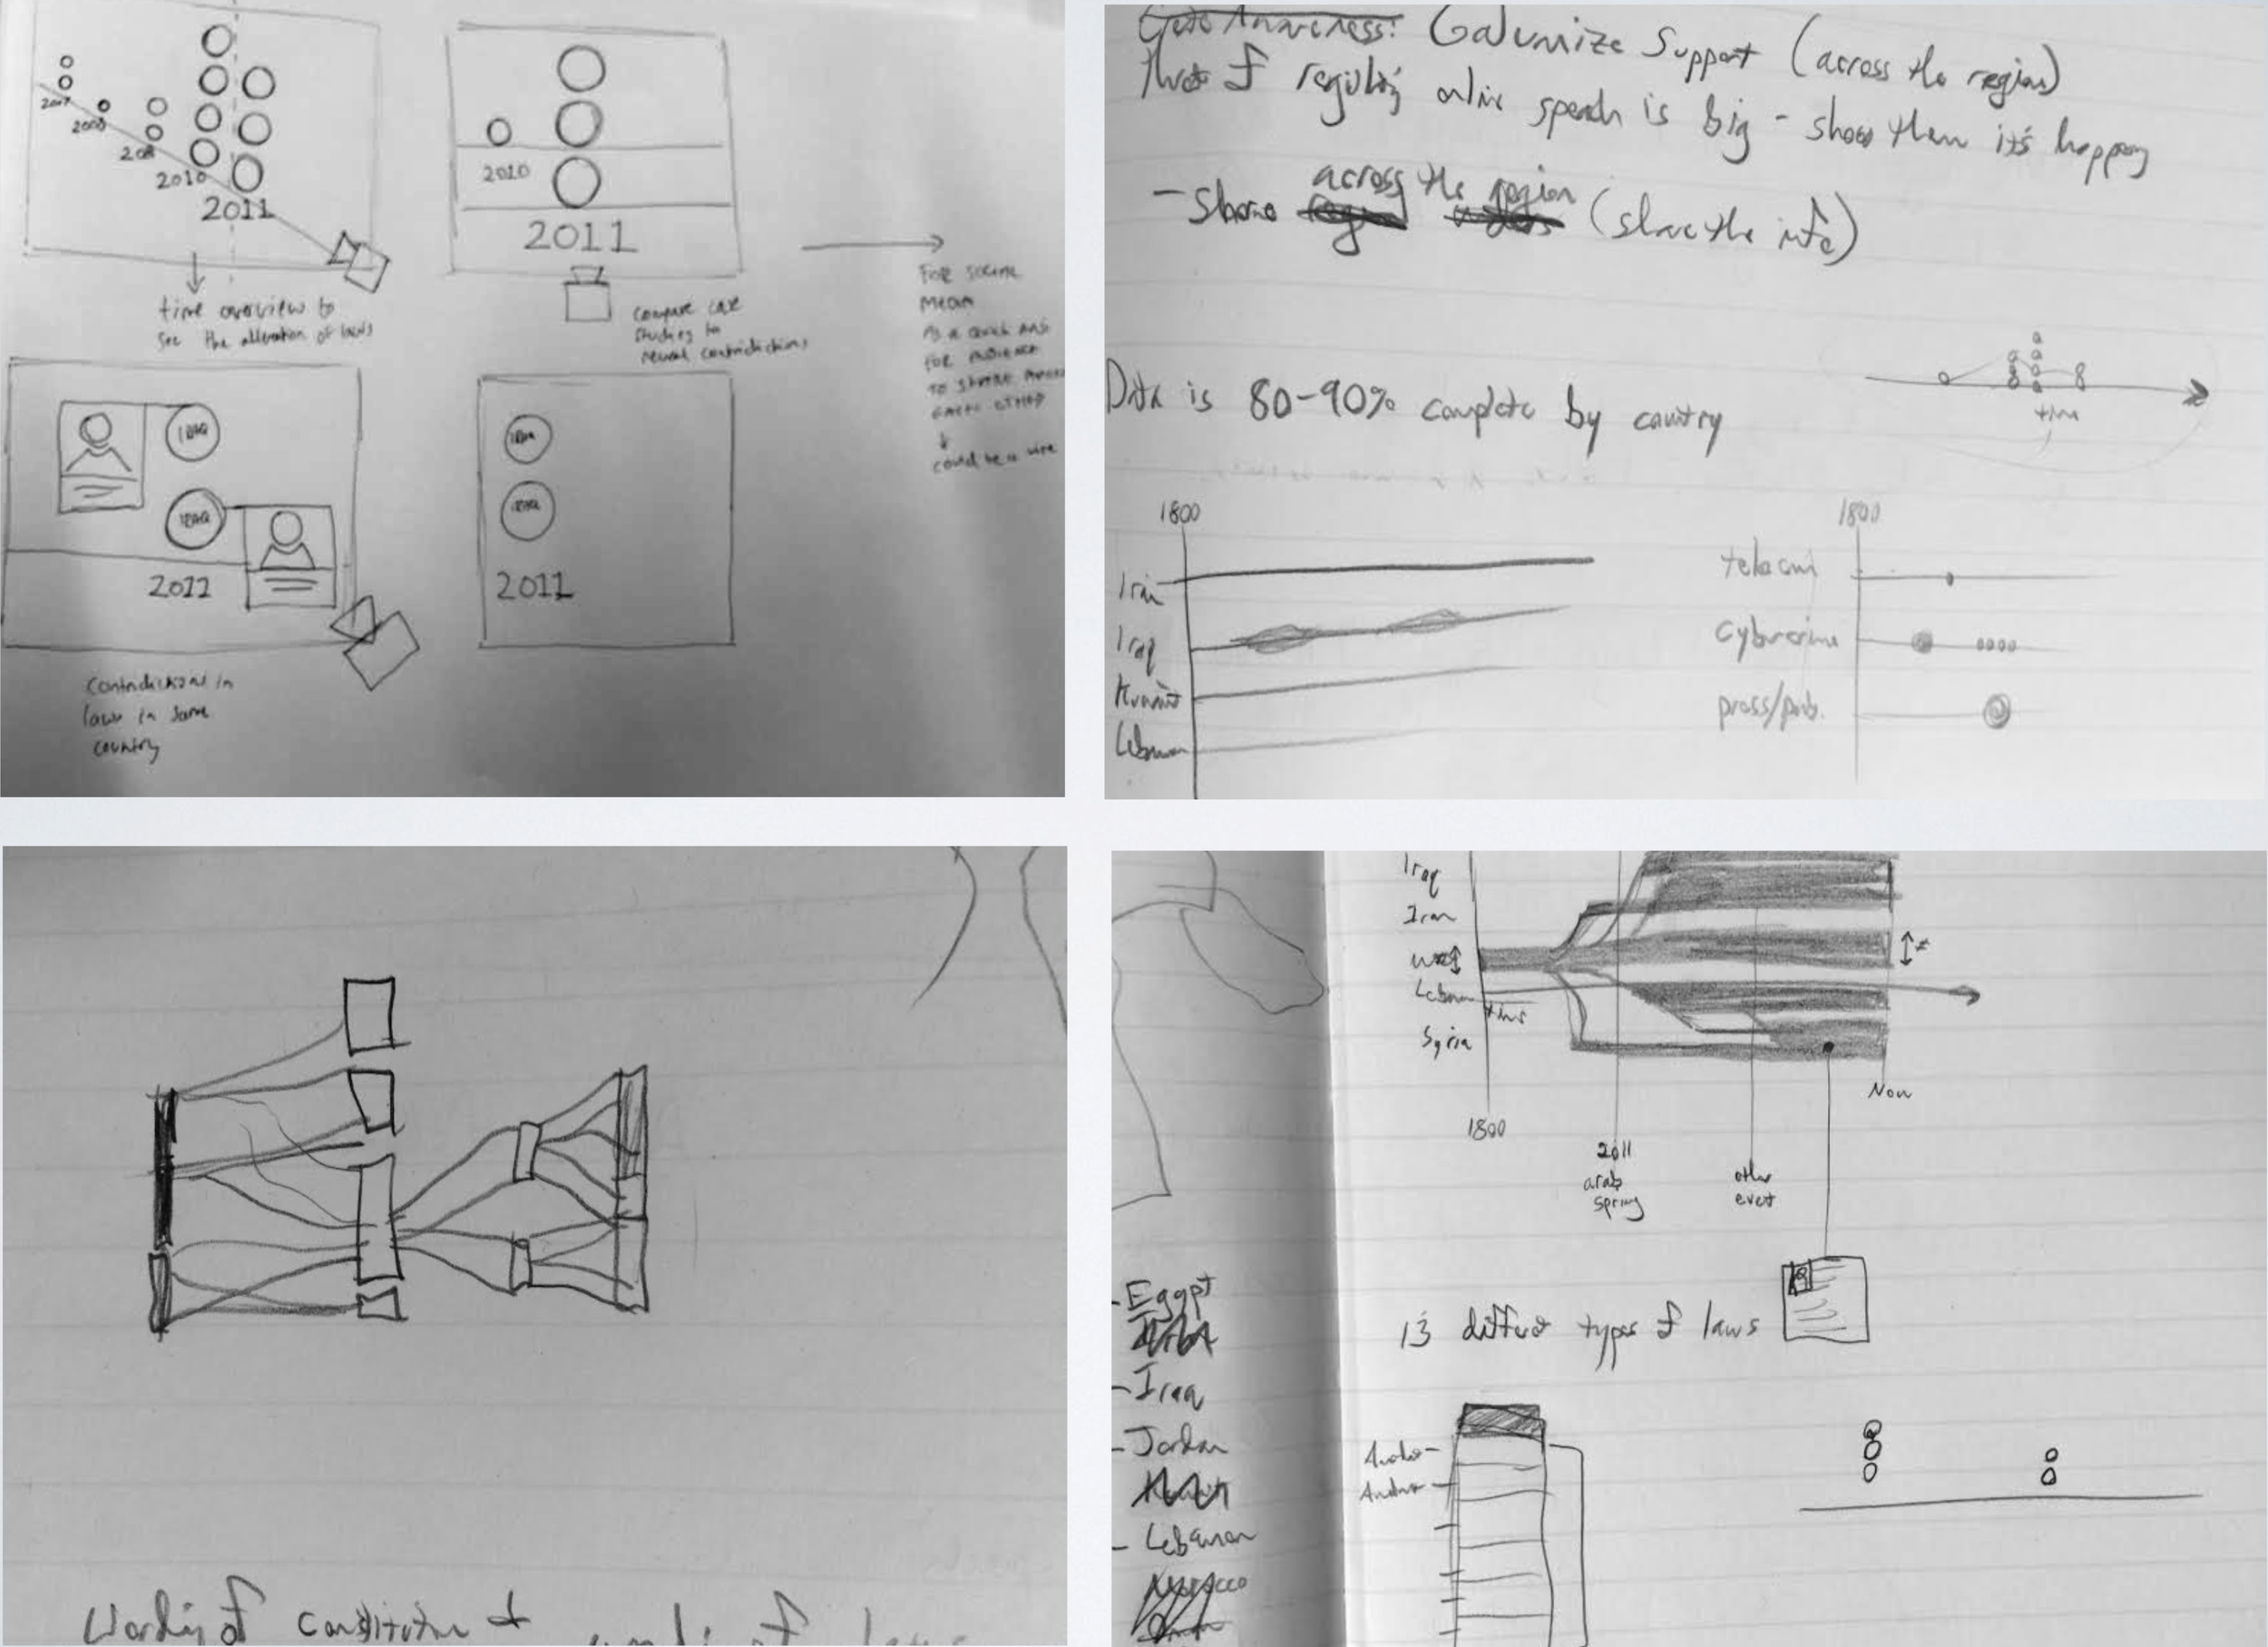 2007
2008
2010
2011
time overview to
see the alteration of laws
2010
2011
compare case
studies to
reveal contradictions
FOR SOCIAL
MEDIA
AS A
FOR AUDIENCE
TO
↓
could be a vine
IRAQ
IRAQ
2011
contradictions in
laws in same
country
IRAQ
IRAQ
2011
Awareness: Galvanize Support (across the region)
threat of regulating online speech is big - show them it's happening
- Share across the region (share the info)
Data is 80-90% complete by country
time
1800
Iran
Iraq
Kuwait
Lebanon
1800
telecom
Cybercrime
press/pub.
Wording of constitution &
of laws
Iraq
Iran
Lebanon
time
Syria
Now
1800
2011
arab
spring
other
event
13 different types of laws
- Egypt
- Iraq
- Jordan
- Lebanon
Morocco